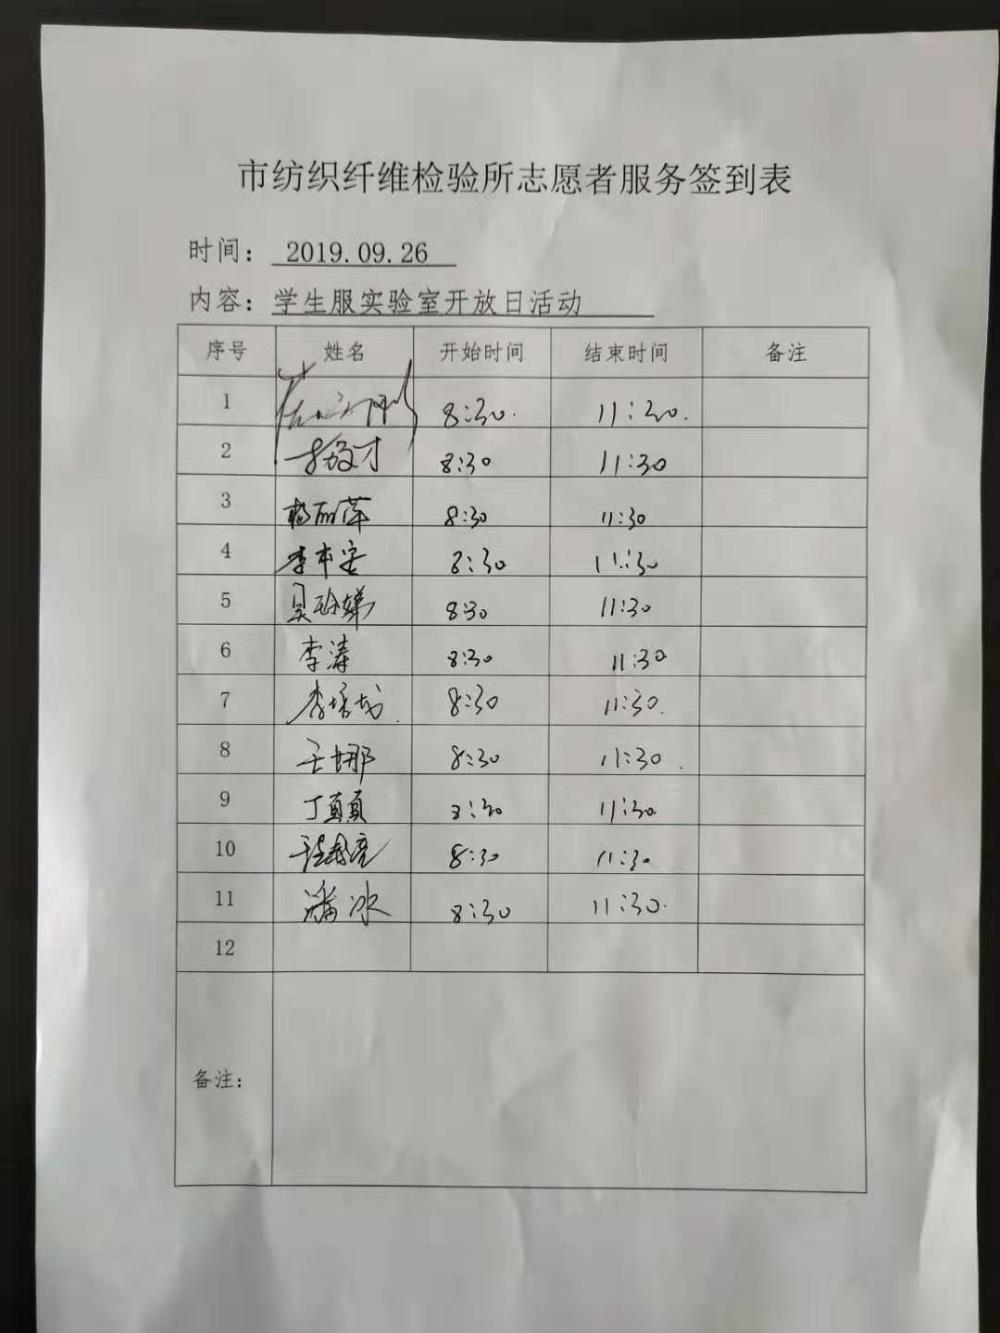 市纺织纤维检验所志愿者服务签到表
时间： 2019.09.26
内容：学生服实验室开放日活动
序号 姓名 开始时间 结束时间 备注
1 8:30. 11:30.
2 8:30 11:30
3 杨丽萍 8:30 11:30
4 李中安 8:30 11:30
5 8:30 11:30
6 李涛 8:30 11:30
7 8:30 11:30.
8 王娜 8:30 11:30.
9 丁真真 8:30 11:30
10 8:30 11:30
11 潘冰 8:30 11:30.
12
备注：